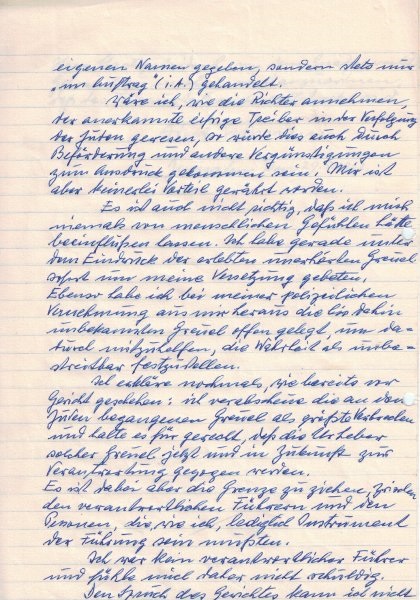 eigenen Namen gegeben, sondern stets nur
„im Auftrag" (i.A.) gehandelt.
Wäre ich, wie die Richter annehmen,
der anerkannte eifrige Treiber in der Verfolgung
der Juden gewesen, so würde dies auch durch
Beförderung und andere Vergünstigungen
zum Ausdruck gekommen sein. Mir ist
aber keinerlei Vorteil gewährt worden.
Es ist auch nicht richtig, daß ich mich
niemals von menschlichen Gefühlen hätte
beeinflußen lassen. Ich habe gerade unter
dem Eindruck der erlebten unerhörten Greuel
sofort um meine Versetzung gebeten.
Ebenso habe ich bei meiner polizeilichen
Vernehmung aus mir heraus die bis dahin
unbekannten Greuel offen gelegt, um da-
durch mitzuhelfen, die Wahrheit als unbe-
streitbar festzustellen.
Ich erkläre nochmals, wie bereits vor
Gericht geschehen: ich verabscheue die an den
Juden begangenen Greuel als größte Verbrechen
und halte es für gerecht, daß die Urheber
solcher Greuel jetzt und in Zukunft zur
Verantwortung gezogen werden.
Es ist dabei aber die Grenze zu ziehen, zwischen
den verantwortlichen Führern und den
Personen, die, wie ich, lediglich Instrument
der Führung sein mußten.
Ich war kein verantwortlicher Führer
und fühle mich daher nicht schuldig.
Den Spruch des Gerichtes kann ich nicht